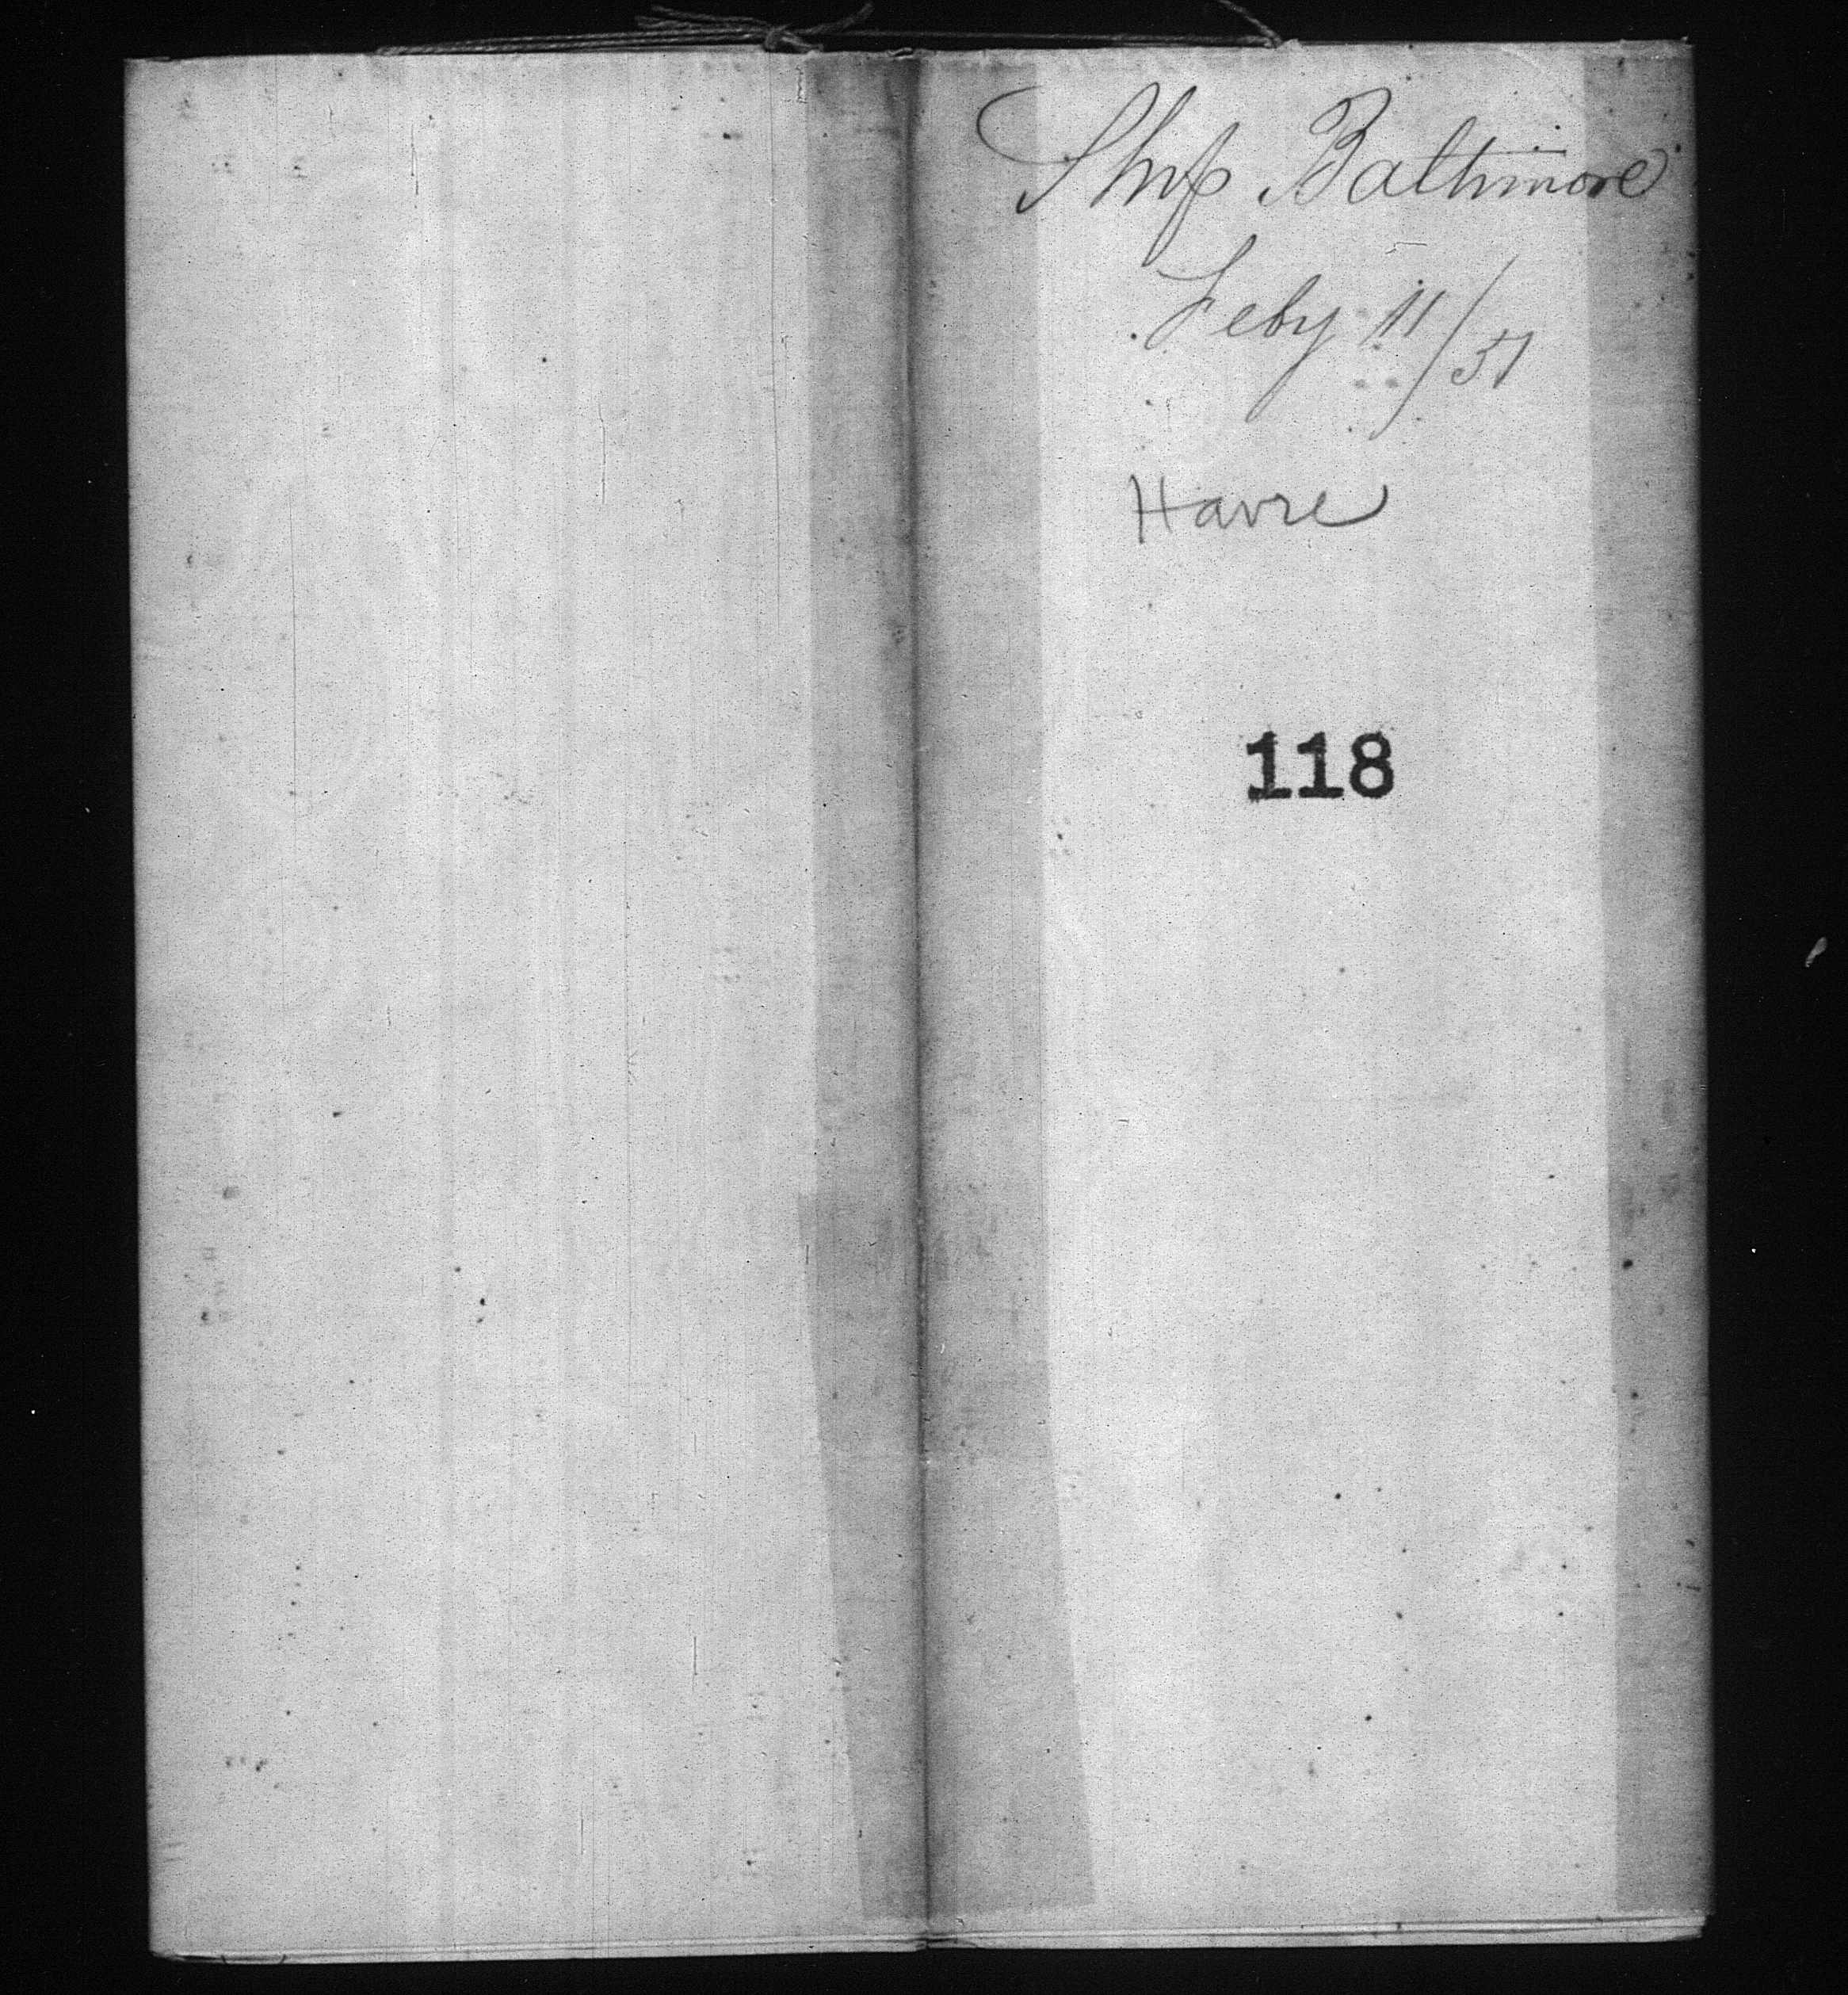 Ship Baltimore
Feby 11/51
Havre
118